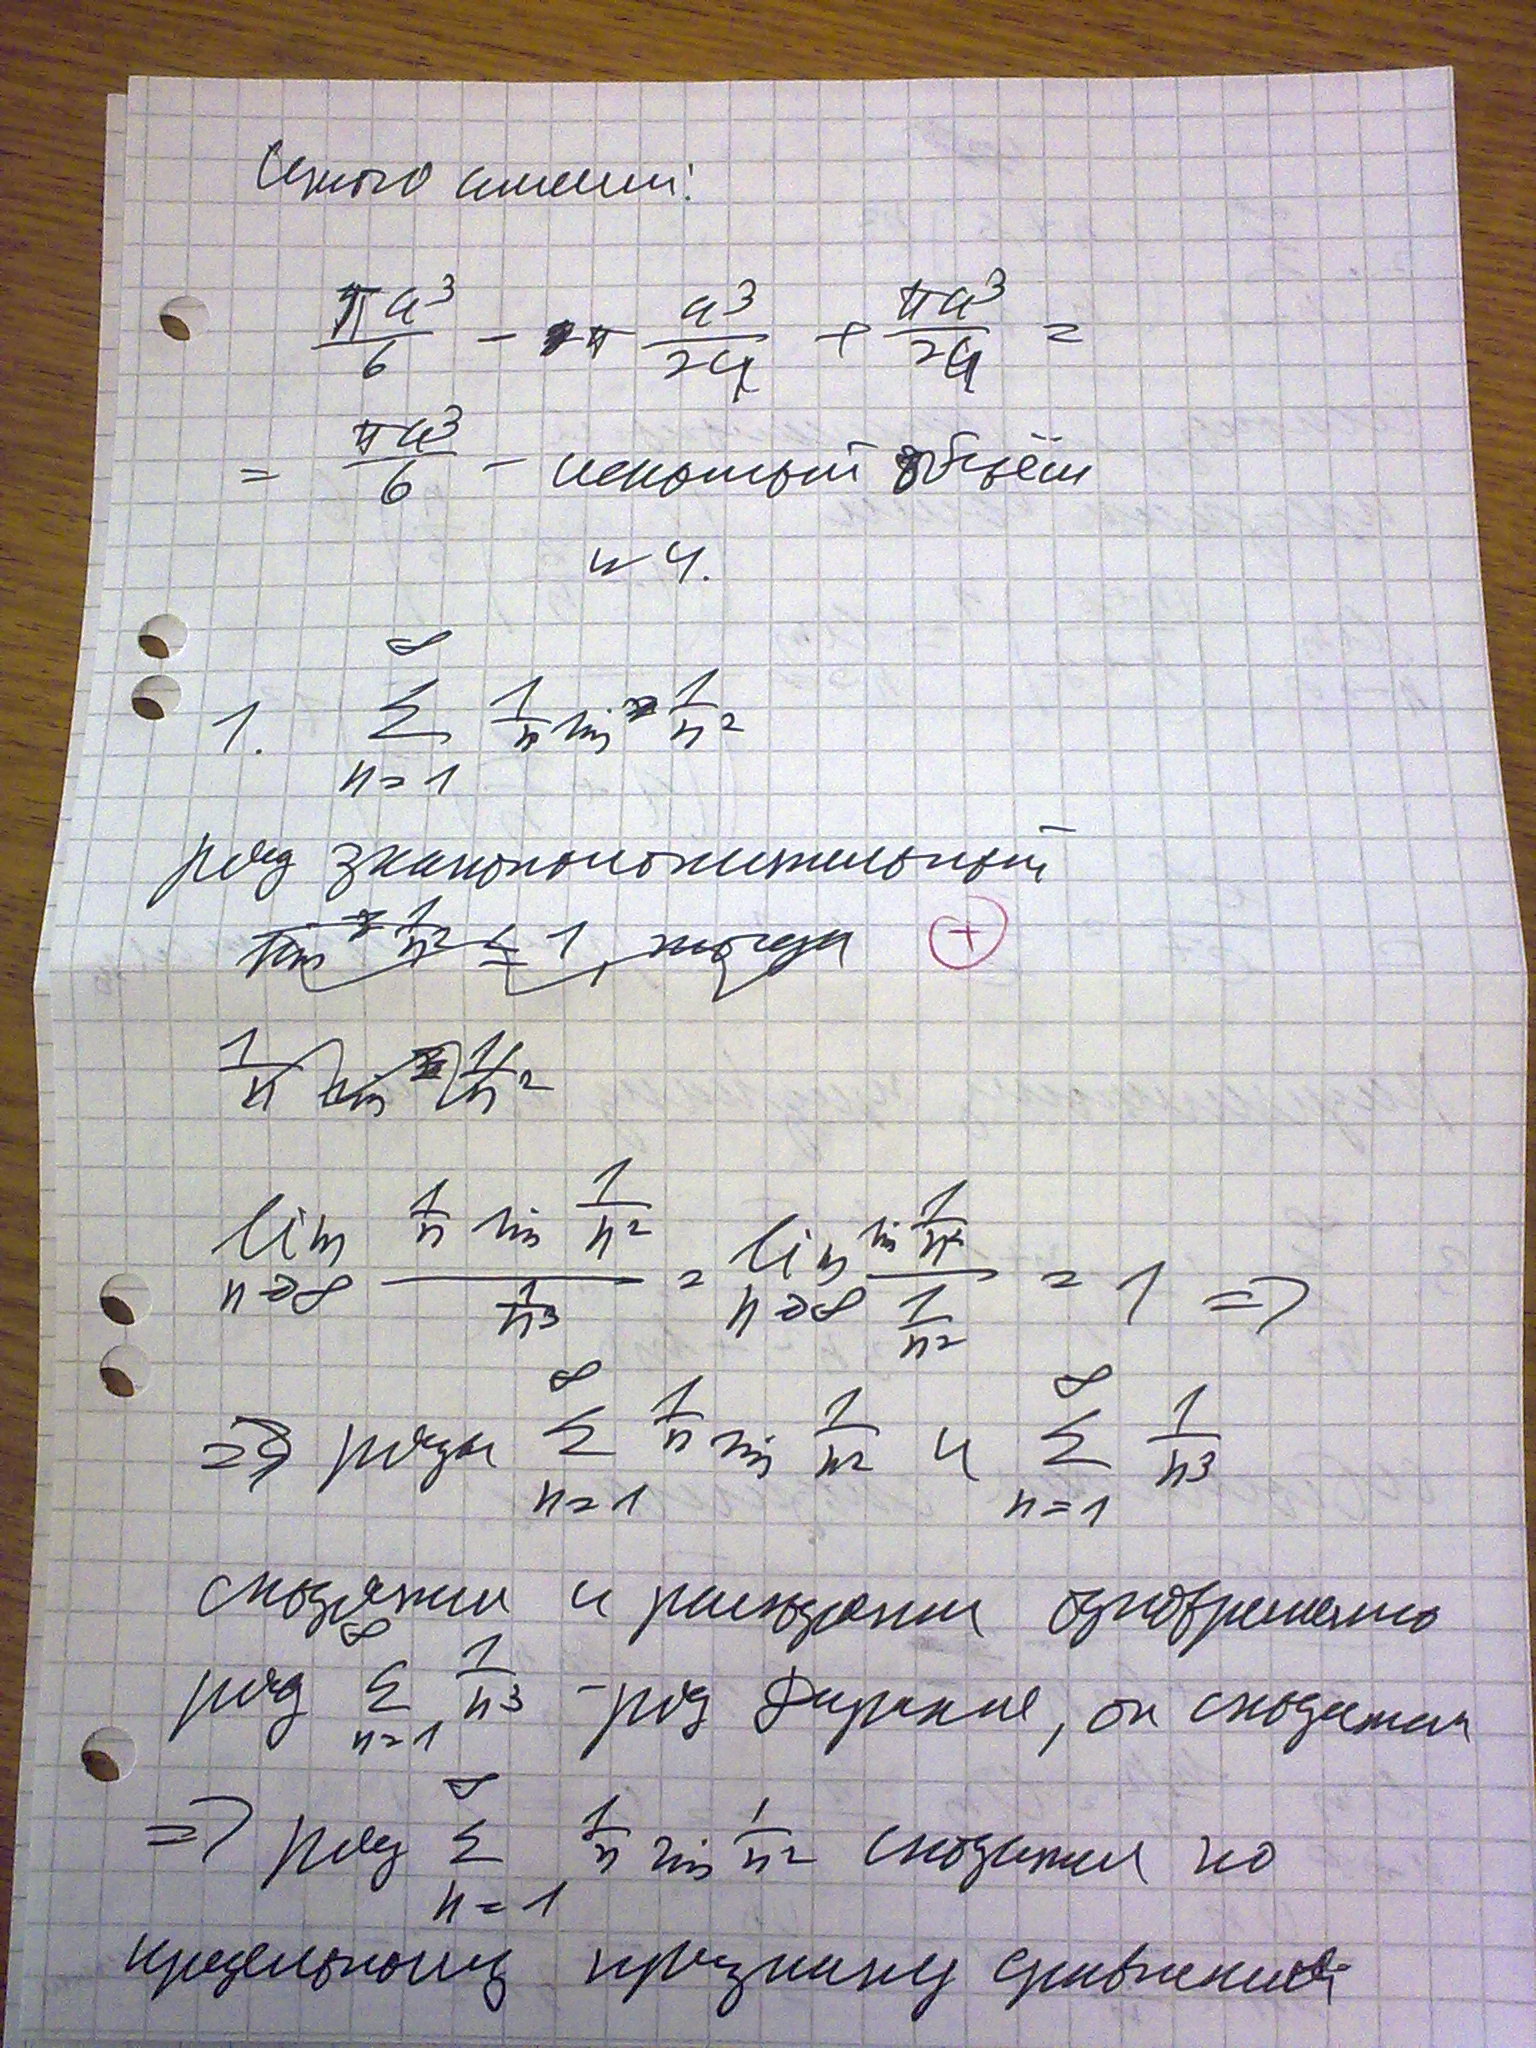 Итого имеем:
πa³/6 - π a³/24 + πa³/24 =
= πa³/6 - искомый объём
№ 4.
1. ∞ ∑ n=1 1/n sin 1/n²
ряд знакоположительный
sin 1/n² ≤ 1, тогда +
1/n sin 1/n²
lim n→∞ (1/n sin 1/n²)/(1/n³) = lim n→∞ (sin 1/n²)/(1/n²) = 1 =>
=> ряды ∞ ∑ n=1 1/n sin 1/n² и ∞ ∑ n=1 1/n³
сходятся и расходятся одновременно
ряд ∞ ∑ n=1 1/n³ - ряд Дирихле, он сходится
=> ряд ∞ ∑ n=1 1/n sin 1/n² сходится по
предельному признаку сравнения